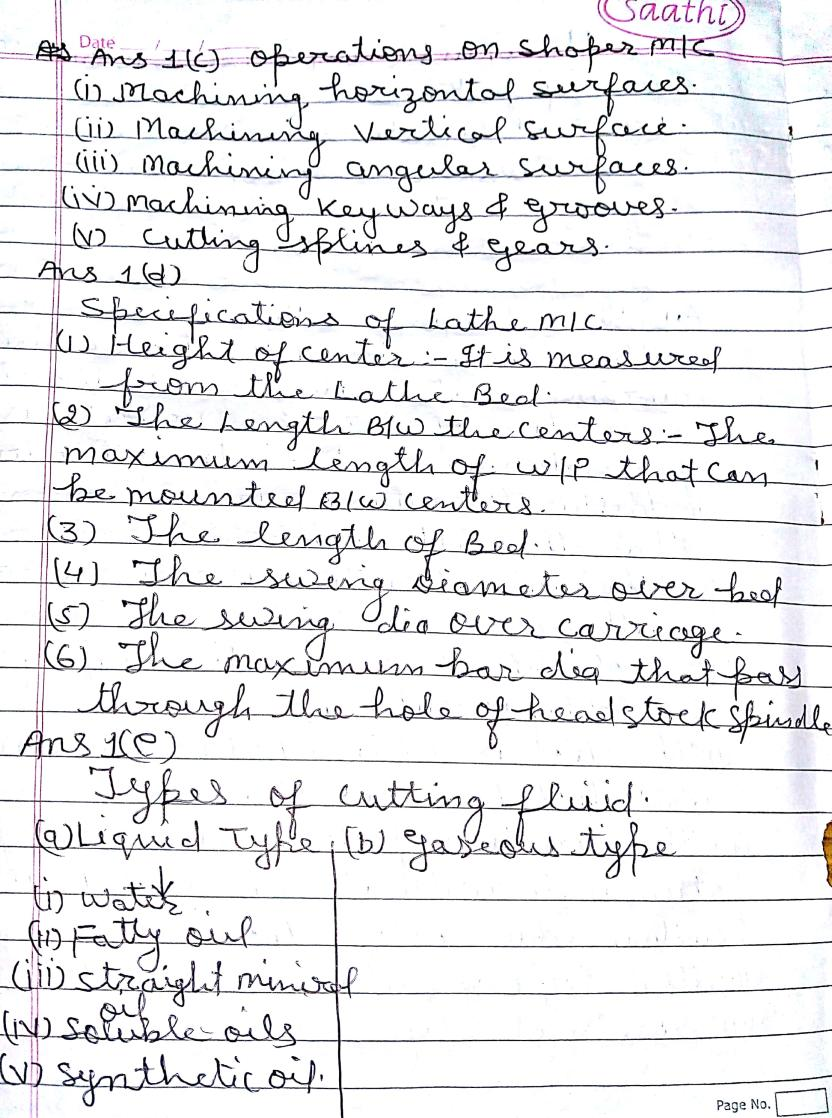 Saathi
Date
Ans 1(c) operations on shaper M/C
(i) Machining horizontal surfaces.
(ii) Machining Vertical surface.
(iii) Machining angular surfaces.
(iv) Machining Keyways & grooves.
(v) Cutting splines & gears.
Ans 1(d)
Specifications of Lathe M/C
(1) Height of center :- It is measured
from the Lathe Bed.
(2) The Length B/W the centers :- The
maximum length of W/P that can
be mounted B/W centers.
(3) The length of Bed.
(4) The swing diameter over bed
(5) The swing dia over carriage.
(6) The maximum bar dia that pass
through the hole of headstock spindle
Ans 1(e)
Types of cutting fluid.
(a) Liquid Type (b) gaseous type
(i) water
(ii) Fatty oil
(iii) straight miniral
oil
(iv) Soluble oils
(v) Synthetic oil.
Page No.